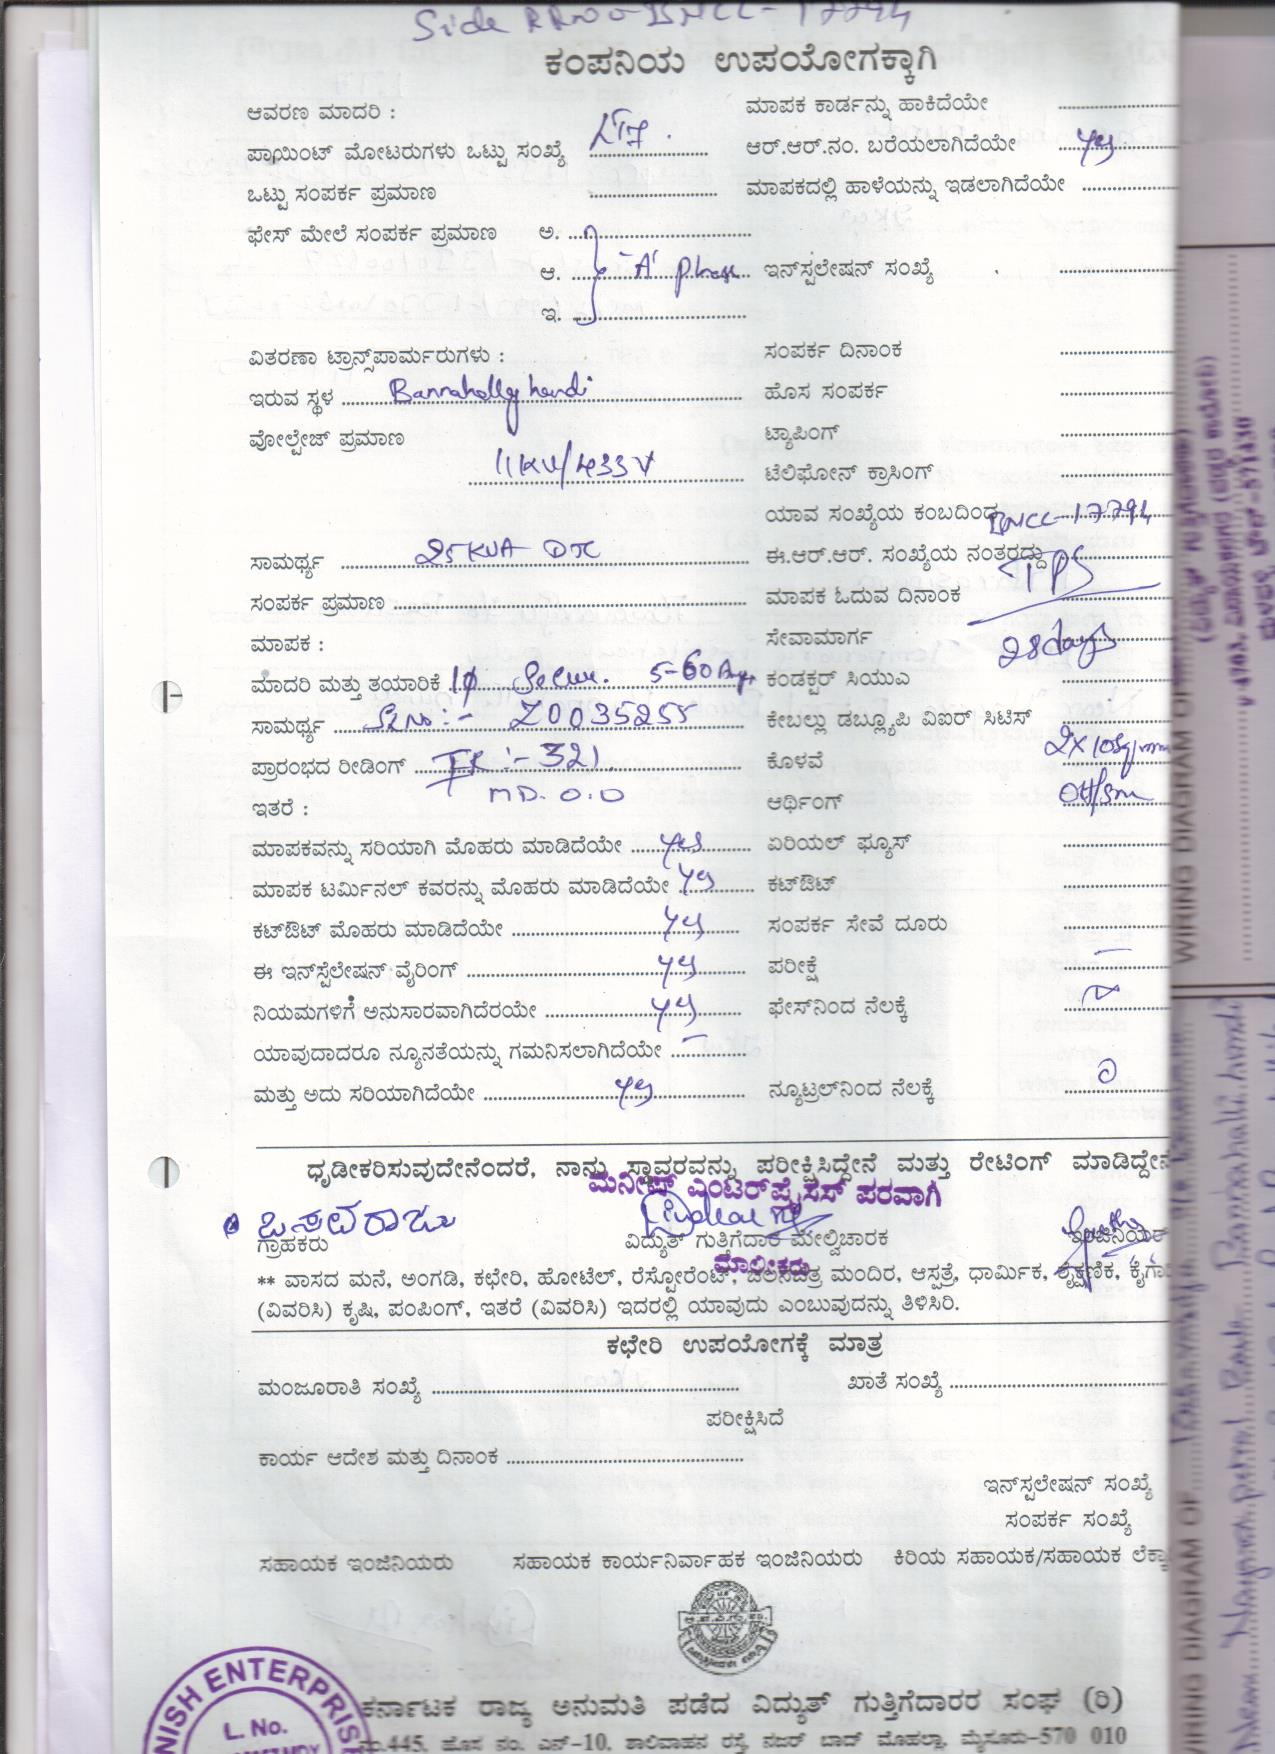 Side RR No - BNCC - 17794
ಕಂಪನಿಯ ಉಪಯೋಗಕ್ಕಾಗಿ
ಆವರಣ ಮಾದರಿ : ಮಾಪಕ ಕಾರ್ಡನ್ನು ಹಾಕಿದೆಯೇ
ಪಾಯಿಂಟ್ ಮೋಟರುಗಳು ಒಟ್ಟು ಸಂಖ್ಯೆ ಆರ್.ಆರ್.ನಂ. ಬರೆಯಲಾಗಿದೆಯೇ yes
ಒಟ್ಟು ಸಂಪರ್ಕ ಪ್ರಮಾಣ ಮಾಪಕದಲ್ಲಿ ಹಾಳೆಯನ್ನು ಇಡಲಾಗಿದೆಯೇ
ಫೇಸ್ ಮೇಲೆ ಸಂಪರ್ಕ ಪ್ರಮಾಣ ಅ.
ಆ. 'A' phase ಇನ್‌ಸ್ಪಲೇಷನ್ ಸಂಖ್ಯೆ
ಇ.
ವಿತರಣಾ ಟ್ರಾನ್ಸ್‌ಪಾರ್ಮರುಗಳು : ಸಂಪರ್ಕ ದಿನಾಂಕ
ಇರುವ ಸ್ಥಳ Bannahally hundi ಹೊಸ ಸಂಪರ್ಕ
ವೋಲ್ಟೇಜ್ ಪ್ರಮಾಣ ಟ್ಯಾಪಿಂಗ್
11KV/433V ಟೆಲಿಫೋನ್ ಕ್ರಾಸಿಂಗ್
ಯಾವ ಸಂಖ್ಯೆಯ ಕಂಬದಿಂದ BNCC-17794
ಸಾಮರ್ಥ್ಯ 25KVA DTC ಈ.ಆರ್.ಆರ್. ಸಂಖ್ಯೆಯ ನಂತರದ್ದು
ಸಂಪರ್ಕ ಪ್ರಮಾಣ ಮಾಪಕ ಓದುವ ದಿನಾಂಕ TPS
ಮಾಪಕ : ಸೇವಾಮಾರ್ಗ 28 days
ಮಾದರಿ ಮತ್ತು ತಯಾರಿಕೆ 1φ Secure. 5-60 Amp ಕಂಡಕ್ಟರ್ ಸಿಯುಎ
ಸಾಮರ್ಥ್ಯ Sl No :- Z0035255 ಕೇಬಲ್ಲು ಡಬ್ಲ್ಯೂಪಿ ವಿಐರ್ ಸಿಟಿಸ್
ಪ್ರಾರಂಭದ ರೀಡಿಂಗ್ IR :- 321. ಕೊಳವೆ 2x10Sq/mm
MD. 0.0
ಇತರೆ : ಆರ್ಥಿಂಗ್ OH/5m
ಮಾಪಕವನ್ನು ಸರಿಯಾಗಿ ಮೊಹರು ಮಾಡಿದೆಯೇ yes ಏರಿಯಲ್ ಫ್ಯೂಸ್
ಮಾಪಕ ಟರ್ಮಿನಲ್ ಕವರನ್ನು ಮೊಹರು ಮಾಡಿದೆಯೇ yes ಕಟ್‌ಔಟ್
ಕಟ್‌ಔಟ್ ಮೊಹರು ಮಾಡಿದೆಯೇ yes ಸಂಪರ್ಕ ಸೇವೆ ದೂರು
ಈ ಇನ್‌ಸ್ಪೆಲೇಷನ್ ವೈರಿಂಗ್ yes ಪರೀಕ್ಷೆ –
ನಿಯಮಗಳಿಗೆ ಅನುಸಾರವಾಗಿದೆರಯೇ yes ಫೇಸ್‌ನಿಂದ ನೆಲಕ್ಕೆ
ಯಾವುದಾದರೂ ನ್ಯೂನತೆಯನ್ನು ಗಮನಿಸಲಾಗಿದೆಯೇ –
ಮತ್ತು ಅದು ಸರಿಯಾಗಿದೆಯೇ yes ನ್ಯೂಟ್ರಲ್‌ನಿಂದ ನೆಲಕ್ಕೆ 0
ಧೃಡೀಕರಿಸುವುದೇನೆಂದರೆ, ನಾನು ಸ್ಥಾವರವನ್ನು ಪರೀಕ್ಷಿಸಿದ್ದೇನೆ ಮತ್ತು ರೇಟಿಂಗ್ ಮಾಡಿದ್ದೇನೆ
ಮನೀಷ್ ಎಂಟರ್‌ಪ್ರೈಸಸ್ ಪರವಾಗಿ
ಬಸವರಾಜು
ಗ್ರಾಹಕರು ವಿದ್ಯುತ್ ಗುತ್ತಿಗೆದಾರ ಮೇಲ್ವಿಚಾರಕ ಇಂಜಿನಿಯರ್
ಮಾಲೀಕರು
** ವಾಸದ ಮನೆ, ಅಂಗಡಿ, ಕಛೇರಿ, ಹೋಟೆಲ್, ರೆಸ್ಟೋರೆಂಟ್, ಚಲನಚಿತ್ರ ಮಂದಿರ, ಆಸ್ಪತ್ರೆ, ಧಾರ್ಮಿಕ, ಶೈಕ್ಷಣಿಕ, ಕೈಗಾ
(ವಿವರಿಸಿ) ಕೃಷಿ, ಪಂಪಿಂಗ್, ಇತರೆ (ವಿವರಿಸಿ) ಇದರಲ್ಲಿ ಯಾವುದು ಎಂಬುವುದನ್ನು ತಿಳಿಸಿರಿ.
ಕಛೇರಿ ಉಪಯೋಗಕ್ಕೆ ಮಾತ್ರ
ಮಂಜೂರಾತಿ ಸಂಖ್ಯೆ ಖಾತೆ ಸಂಖ್ಯೆ
ಪರೀಕ್ಷಿಸಿದೆ
ಕಾರ್ಯ ಆದೇಶ ಮತ್ತು ದಿನಾಂಕ
ಇನ್‌ಸ್ಪಲೇಷನ್ ಸಂಖ್ಯೆ
ಸಂಪರ್ಕ ಸಂಖ್ಯೆ
ಸಹಾಯಕ ಇಂಜಿನಿಯರು ಸಹಾಯಕ ಕಾರ್ಯನಿರ್ವಾಹಕ ಇಂಜಿನಿಯರು ಕಿರಿಯ ಸಹಾಯಕ/ಸಹಾಯಕ ಲೆಕ್ಕಾ
NISH ENTERPRIS
L. No.
ಕರ್ನಾಟಕ ರಾಜ್ಯ ಅನುಮತಿ ಪಡೆದ ವಿದ್ಯುತ್ ಗುತ್ತಿಗೆದಾರರ ಸಂಘ (ರಿ)
ನಂ.445, ಹೊಸ ನಂ. ಎನ್-10, ಶಾಲಿವಾಹನ ರಸ್ತೆ, ನಜರ್ ಬಾದ್ ಮೊಹಲ್ಲಾ, ಮೈಸೂರು-570 010
WIRING DIAGRAM OF
WIRING DIAGRAM OF